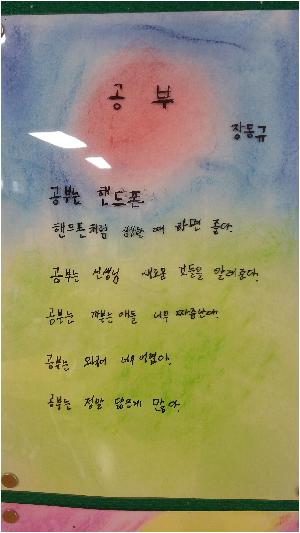 공부
장동규
공부는 핸드폰
핸드폰처럼 심심할 때 하면 좋다.
공부는 선생님 새로운 것들을 알려준다.
공부는 까부는 애들 너무 짜증난다.
공부는 너무 어렵다.
공부는 정말 닮은게 많다.